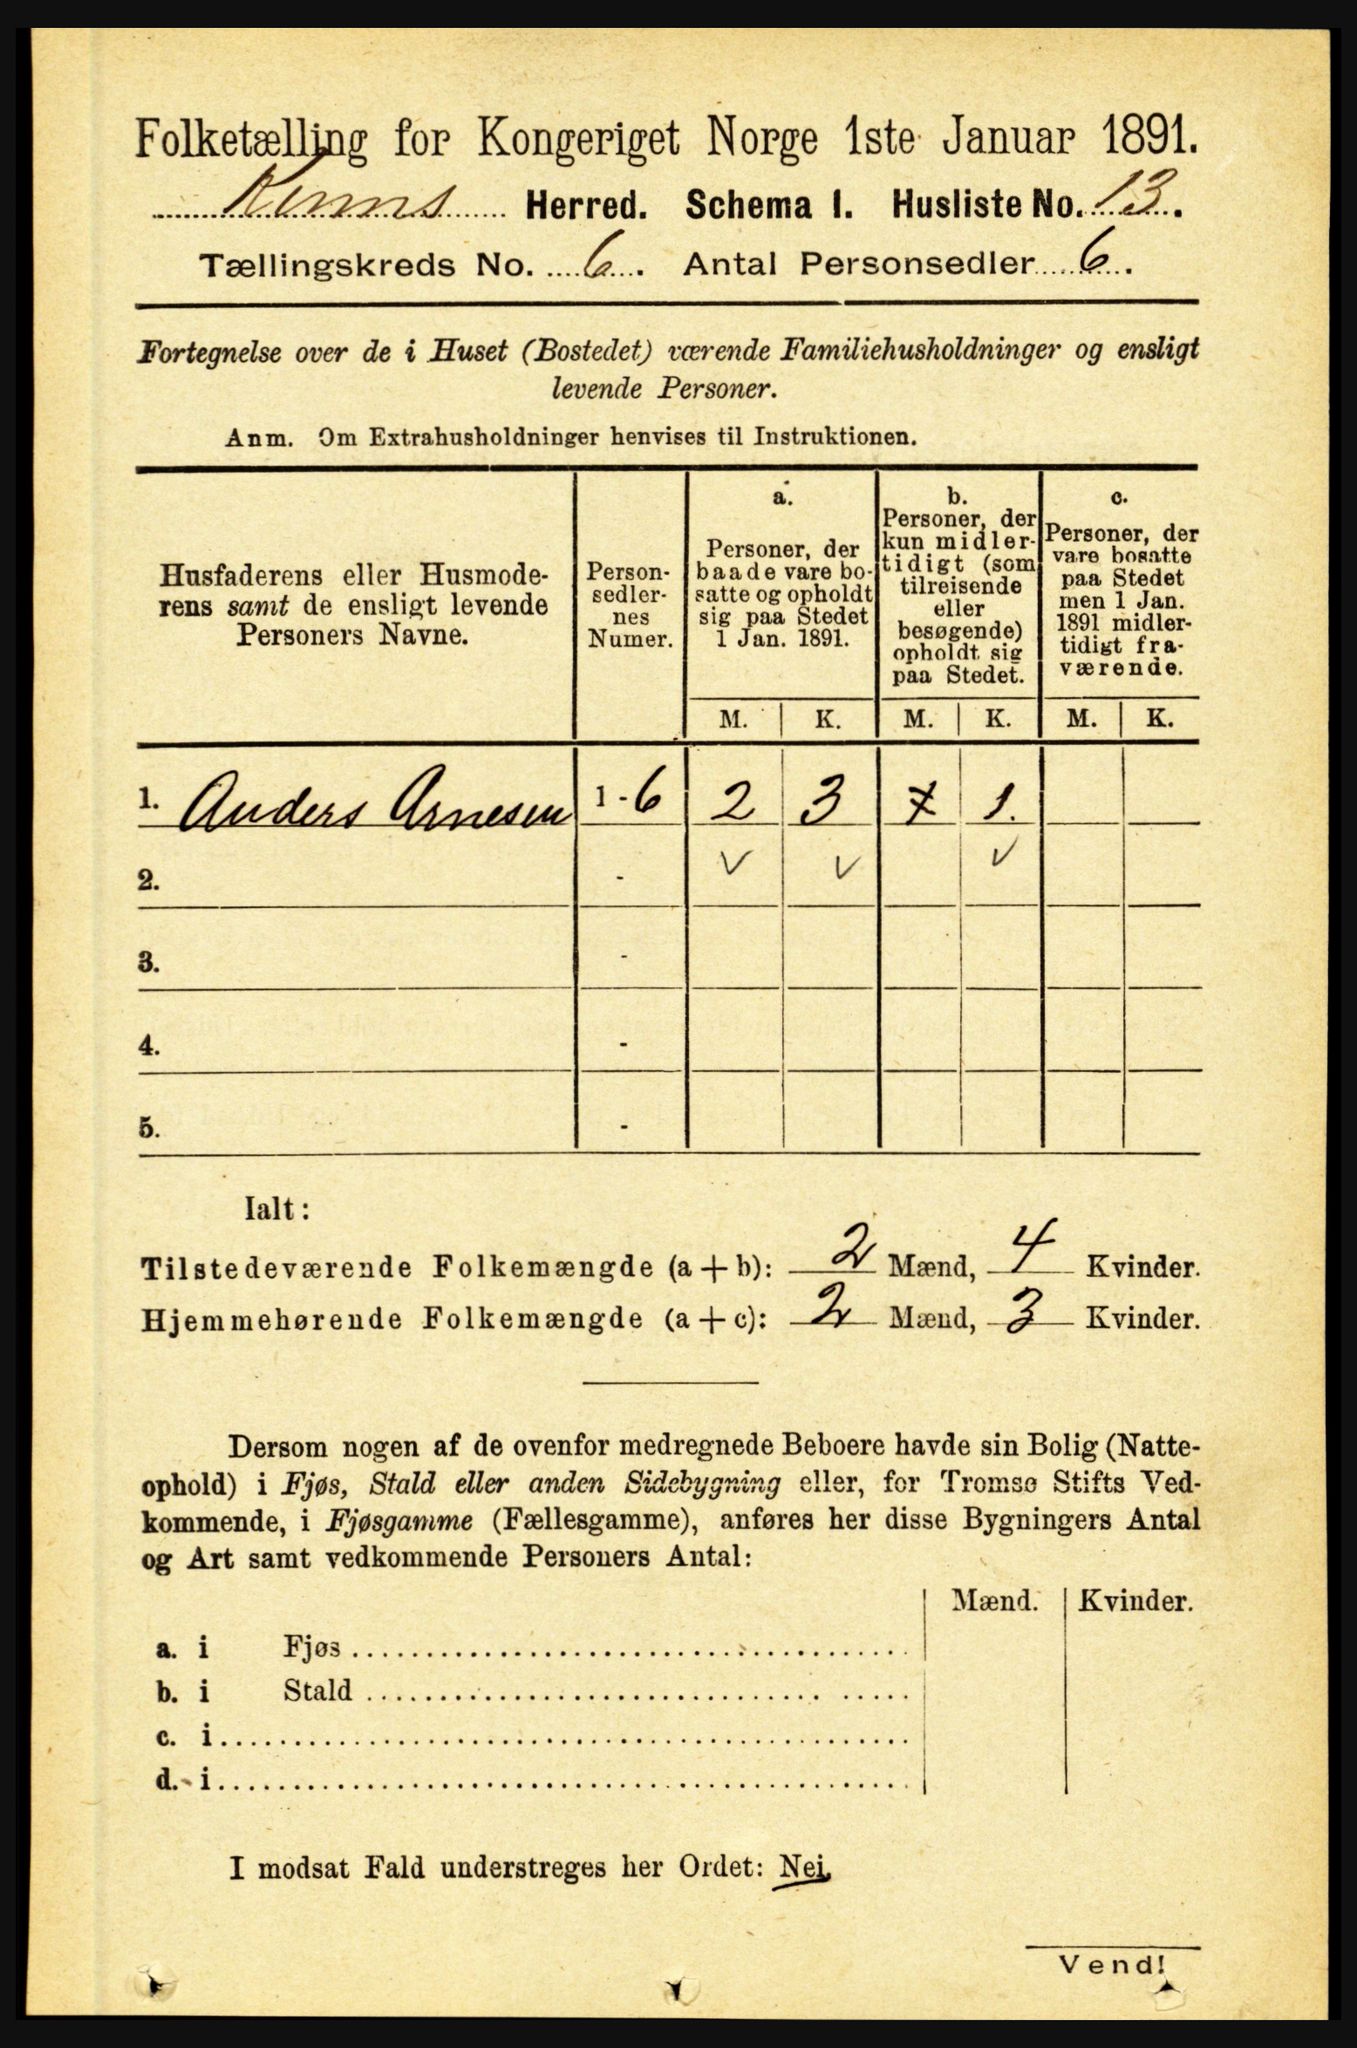 Folketælling for Kongeriget Norge 1ste Januar 1891.
Kinns Herred. Schema I. Husliste No. 13.
Tællingskreds No. 6. Antal Personsedler 6.
Fortegnelse over de i Huset (Bostedet) værende Familiehusholdninger og ensligt
levende Personer.
Anm. Om Extrahusholdninger henvises til Instruktionen.
Husfaderens eller Husmode-
rens samt de ensligt levende
Personers Navne.
Person-
sedler-
nes
Numer.
a.
Personer, der
baade vare bo-
satte og opholdt
sig paa Stedet
1 Jan. 1891.
b.
Personer, der
kun midler-
tidigt (som
tilreisende
eller
besøgende)
opholdt sig
paa Stedet.
c.
Personer, der
vare bosatte
paa Stedet
men 1 Jan.
1891 midler-
tidigt fra-
værende.
M. K. M. K. M. K.
1. Anders Arnesen 1-6 2 3 1.
2. -
3. -
4. -
5. -
Ialt:
Tilstedeværende Folkemængde (a + b): 2 Mænd, 4 Kvinder.
Hjemmehørende Folkemængde (a + c): 2 Mænd, 3 Kvinder.
Dersom nogen af de ovenfor medregnede Beboere havde sin Bolig (Natte-
ophold) i Fjøs, Stald eller anden Sidebygning eller, for Tromsø Stifts Ved-
kommende, i Fjøsgamme (Fællesgamme), anføres her disse Bygningers Antal
og Art samt vedkommende Personers Antal:
Mænd. Kvinder.
a. i Fjøs
b. i Stald
c. i
d. i
I modsat Fald understreges her Ordet: Nei.
Vend!